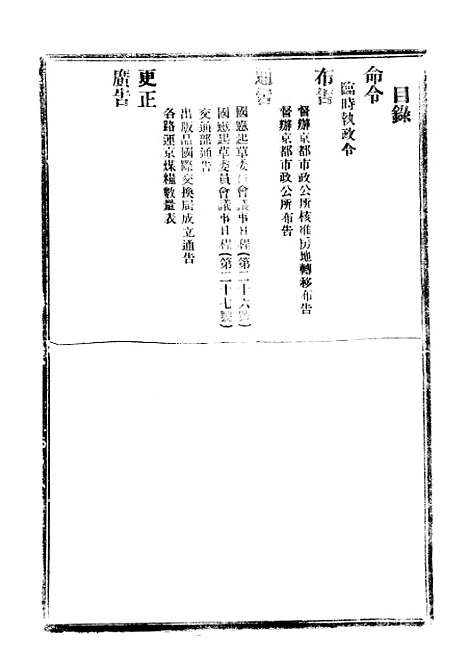 目錄
命令
臨時執政令
布告
督辦京都市政公所核准房地轉移布告
督辦京都市政公所布告
通告
國憲起草委員會議事日程(第二十六號)
國憲起草委員會議事日程(第二十七號)
交通部通告
出版品國際交換局成立通告
各路運京煤糧數量表
更正
廣告